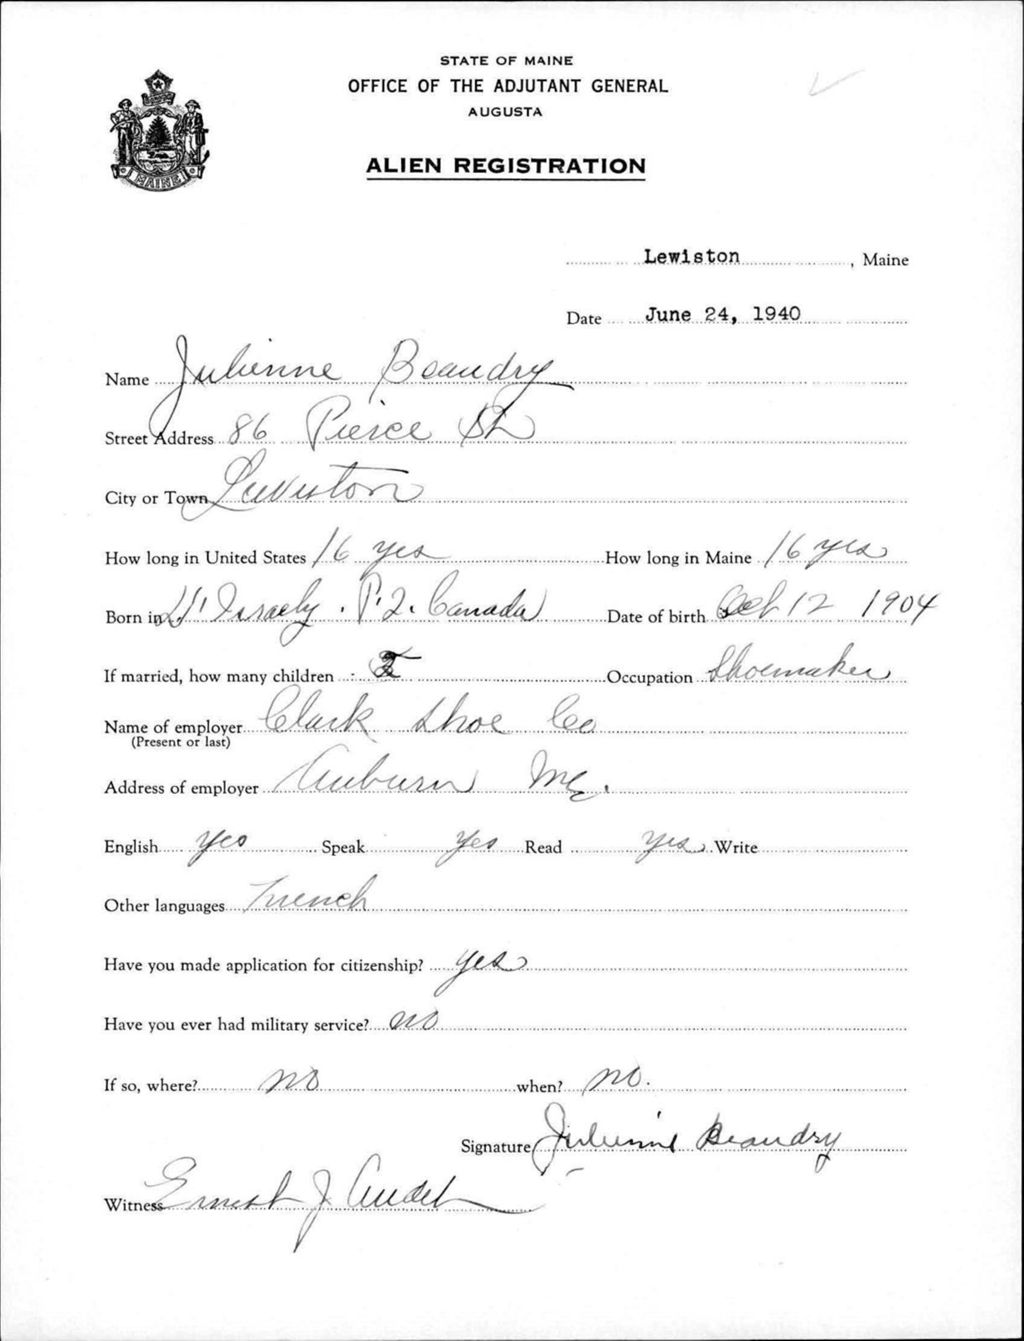 STATE OF MAINE
OFFICE OF THE ADJUTANT GENERAL
AUGUSTA
ALIEN REGISTRATION
MAINE
Lewiston, Maine
Date June 24, 1940
Name Julienne Beaudry
Street Address 86 Pierce St
City or Town Lewiston
How long in United States 16 yes How long in Maine 16 yrs
Born in St Israely. P.Q. Canada Date of birth Oct 12 1904
If married, how many children : Occupation Shoemaker
Name of employer Clark Shoe Co
(Present or last)
Address of employer Auburn Me.
English yes Speak yes Read yes Write
Other languages French
Have you made application for citizenship? yes
Have you ever had military service? no
If so, where? no when? no.
Signature Julienne Beaudry
Witness Ernest J Audet